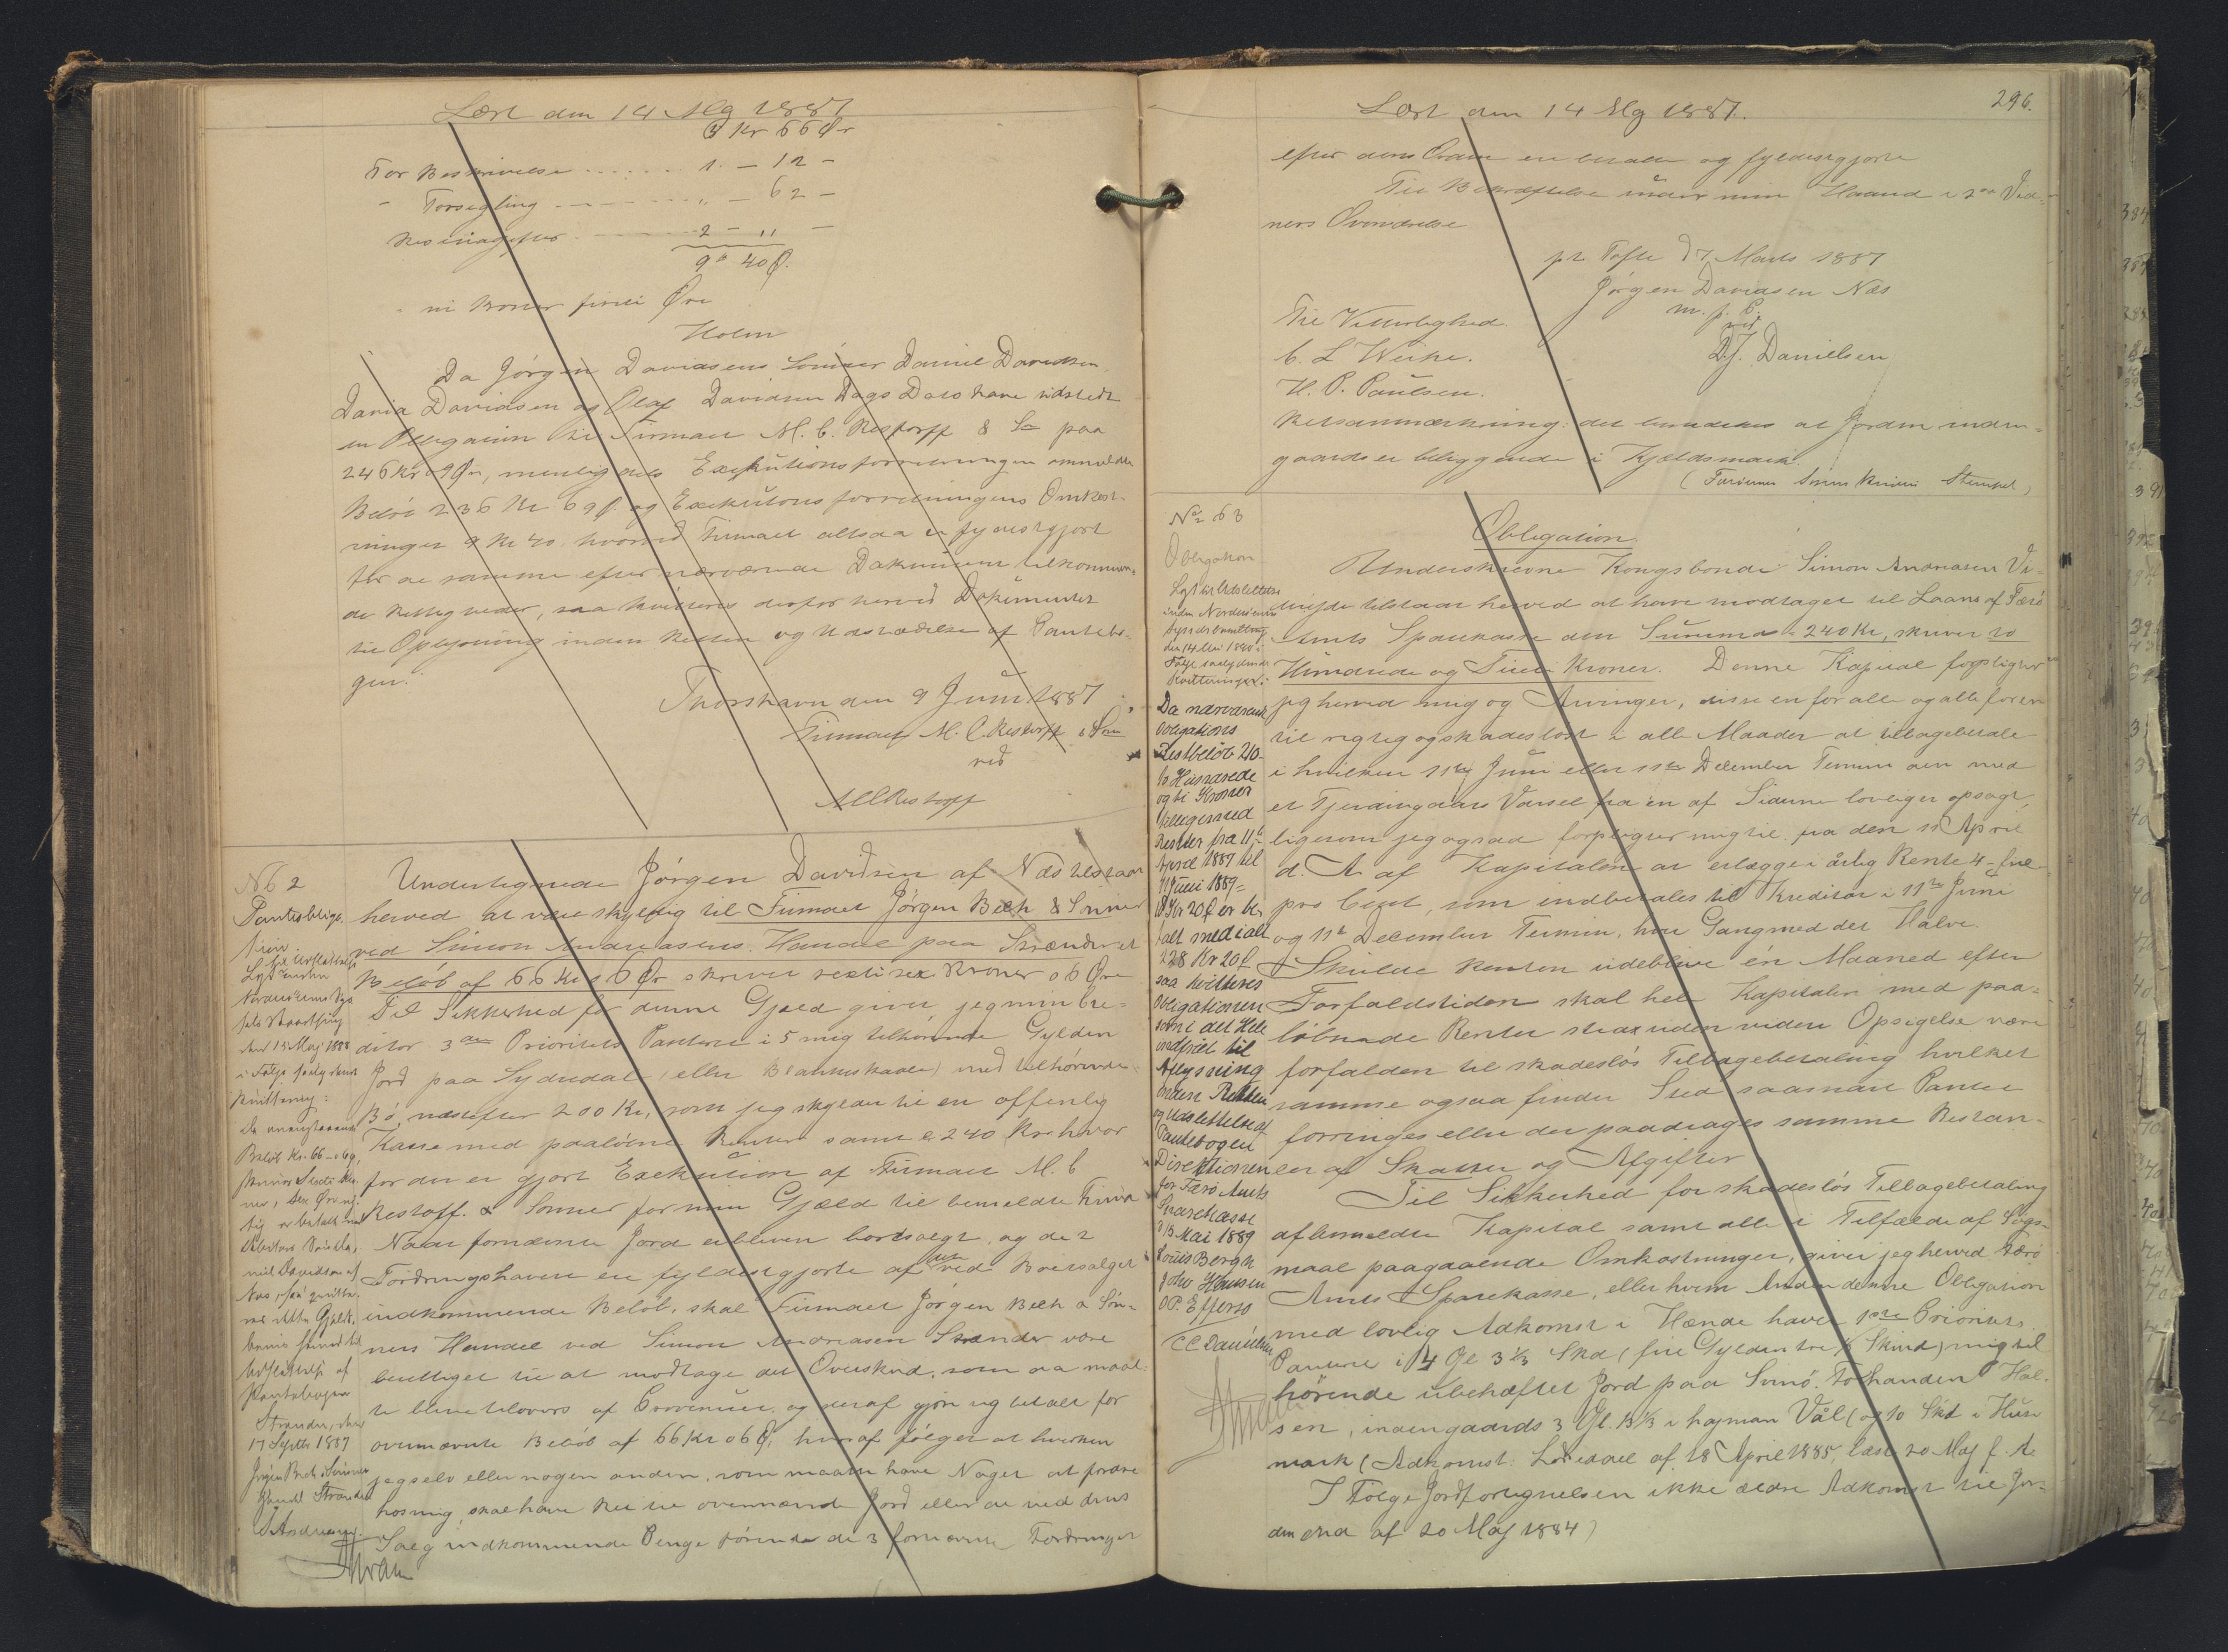 Læst den 14 Mg 1887
3 Kr 66 Ør
For Beskrivelse ...... 1. - 12 -
- Forsegling ------ " - 62 -
------ 2 - " -
9 " 40 Ø.
ni Kroner firti Øre
Holm
Da Jörgen Davidsens Sönner Daniel Davidsen
David Davidsen og Olaf Davidsen Dags Dato have udstedt
en Obligation til Firmaet M. C. Restorff & Sön paa
246 Kr 09 Ør, nemlig Exekutionsforretningen ommeldte
Belöb 236 Kr 69 Ø og Exekutionsforretningens Omkost-
ninger 9 Kr 40, hvorved Firmaet altsaa er fyldestgjort
for de samme efter nærværende Dokument tilkommen-
de Rettigheder, saa kvitteres derfor herved Dokumentet
til Oplysning inden Retten og Udslettelse af Pantebo-
gen.
Thorshavn den 9 Juni 1887
Firmaet M. C. Restorff & Sön
ved
M C Restorff
N 62
Pantobliga-
tion.
Lyst til Udslettelse
inden
Norderöernes Sys-
sels Vaarthing
den 15 Maj 1888
i Følge saalydende
Kvittering:
Da ovenstaaende
Beløb Kr. 66 - 06 Ø,
skriver Sexti Kro-
ner, sex Øre rig-
tig er betalt med
Debitors Sön Da-
niel Davidsen af
Næs, saa kvitte-
res dette Gjælds-
bevis herved til
Udslettelse af
Pantebogen
Strænder, den
17 Septbr 1887
Jörgen Bech & Sönners
Handel Strænder
S Andreasen
Undertegnede Jörgen Davidsen af Næs tilstaar
herved at være skyldig til Firmaet Jörgen Bech & Sönner
ved Simon Andreasens Handel paa Strænder et
Belöb af 66 Kr 06 Ør skriver sexti sex Kroner 06 Øre
Til Sikkerhed for denne Gjæld giver jeg min Cre-
ditor 3die Prioritets Panteret i 5 mig tilhørende Gylden
Jord paa Sydredal (eller Blankskaale) med tilhørende
Bö, næstefter 200 Kr, som jeg skylder til en offenlig
Kasse med paaløbne Renter samt c. 240 Kr hvor
for der er gjort Exekution af Firmaet M. C
Restoff. & Sönner for min Gjæld til bemeldte Firma
Naar fornævnte Jord er bleven bortsolgt, og de 2
Fordringshavere ere fyldestgjorte af det ved Bortsalget
indkommende Belöb, skal Firmaet Jörgen Bech & Sön-
ners Handel ved Simon Andreasen Strænder være
berettiget til at modtage det Overskud, som da maat-
te blive tilovers af Provenuet, og deraf gjøre sig betalt for
ovennævnte Belöb af 66 Kr 06 Ø, hvoraf fölger at hverken
jeg selv eller nogen anden, som maatte have Noget at fordre
hos mig, skal have Ret til ovennævnte Jord eller de ved dens
Salg indkommende Penge förend de 3 fornævnte Fordringer
296.
Læst den 14 Mg 1887.
efter deres Orden ere betalte og fyldestgjorte
Til Bekræftelse under min Haand i 2de Vid-
ners Overværelse
pt Tofte d 7 Marts 1887
Jørgen Davidsen Næs
m. f. P.
ved
D. J. Danielsen
Til Vitterlighed
C. L Weihe.
H. P. Paulsen.
Retsanmærkning: det bemærkes at Jorden inden-
gaards er beliggende i Kjeldsmark
( Stempel )
No 63
Obligation
Lyst til Udslettelse
inden Norderöernes
Syssels
den 14 Mai 1890 i
Følge saalydende
Kvitteringer:
Da nærværende
Obligations
Restbeløb 210-
to Hundrede
og ti Kroner
tilligemed
Renter fra 11te
April 1887 til
11 Juni 1889 =
18 Kr 20 Ø er be-
talt med ialt
228 Kr 20 Ø
saa kvitteres
Obligationen
som i det Hele
indfriet til
Aflysning
inden Retten
og Udslettelse af
Pantebogen
Direktionen
for Færø Amts
Sparekasse
d 13 Mai 1889
Louis Bergh
John Hansen
O P. Effersø
C C Danielsen
Obligation
Underskrevne Kongsbonde Simon Andreasen Vi-
tilstaar herved at have modtaget til Laans af Færø
Amts Sparekasse den Summa = 240 Kr, skriver to
Hundrede og Firti Kroner. Denne Kapital forpligter
jeg herved mig og Arvinger, disse en for alle og alle for en
til rigtig og skadeslöst i alle Maader at tilbagebetale
i hvilken 11te Juni eller 11te December Termin den med
et Fjerdingaars Varsel fra en af Siderne lovligen opsagt,
ligesom jeg ogsaa forpligter mig til fra den 11 April
d. A af Kapitalen at erlægge i årlig Rente 4 - fire
pro Cent, som indbetales til Kreditor i 11te Juni
og 11te December Termin, hver Gang med det Halve.
Skulde Renten udeblive én Maaned efter
Forfaldstiden skal hele Kapitalen med paa-
løbende Renter strax uden videre Opsigelse være
forfalden til skadeslös Tilbagebetaling hvilket
samme ogsaa finder Sted saasnart Pantet
forringes eller der paadrages samme Restan-
cer af Skatter og Afgifter
Til Sikkerhed for skadeslös Tilbagebetaling
af bemeldte Kapital samt alle i Tilfælde af Søgs-
maal paagaaende Omkostninger, giver jeg herved Færø
Amts Sparekasse, eller hvem Anden denne Obligation
med lovlig Adkomst i Hænde haver 1ste Prioritets
Panteret i 4 Gl 3 1/3 Skd (fire Gylden tre 1/3 Skind) mig til
hörende ubehæftet Jord paa Svinö. Hal.
sen, indengaards 3 Gl. 13 1/3 i hajman Vål (og 10 Skd i Huse
mark (Adkomst: af 18 April 1885, læst 20 Maj f. A.
I Følge Jordfortegnelsen ikke ældre Adkomst til Jor-
den end af 20 Maj 1884)